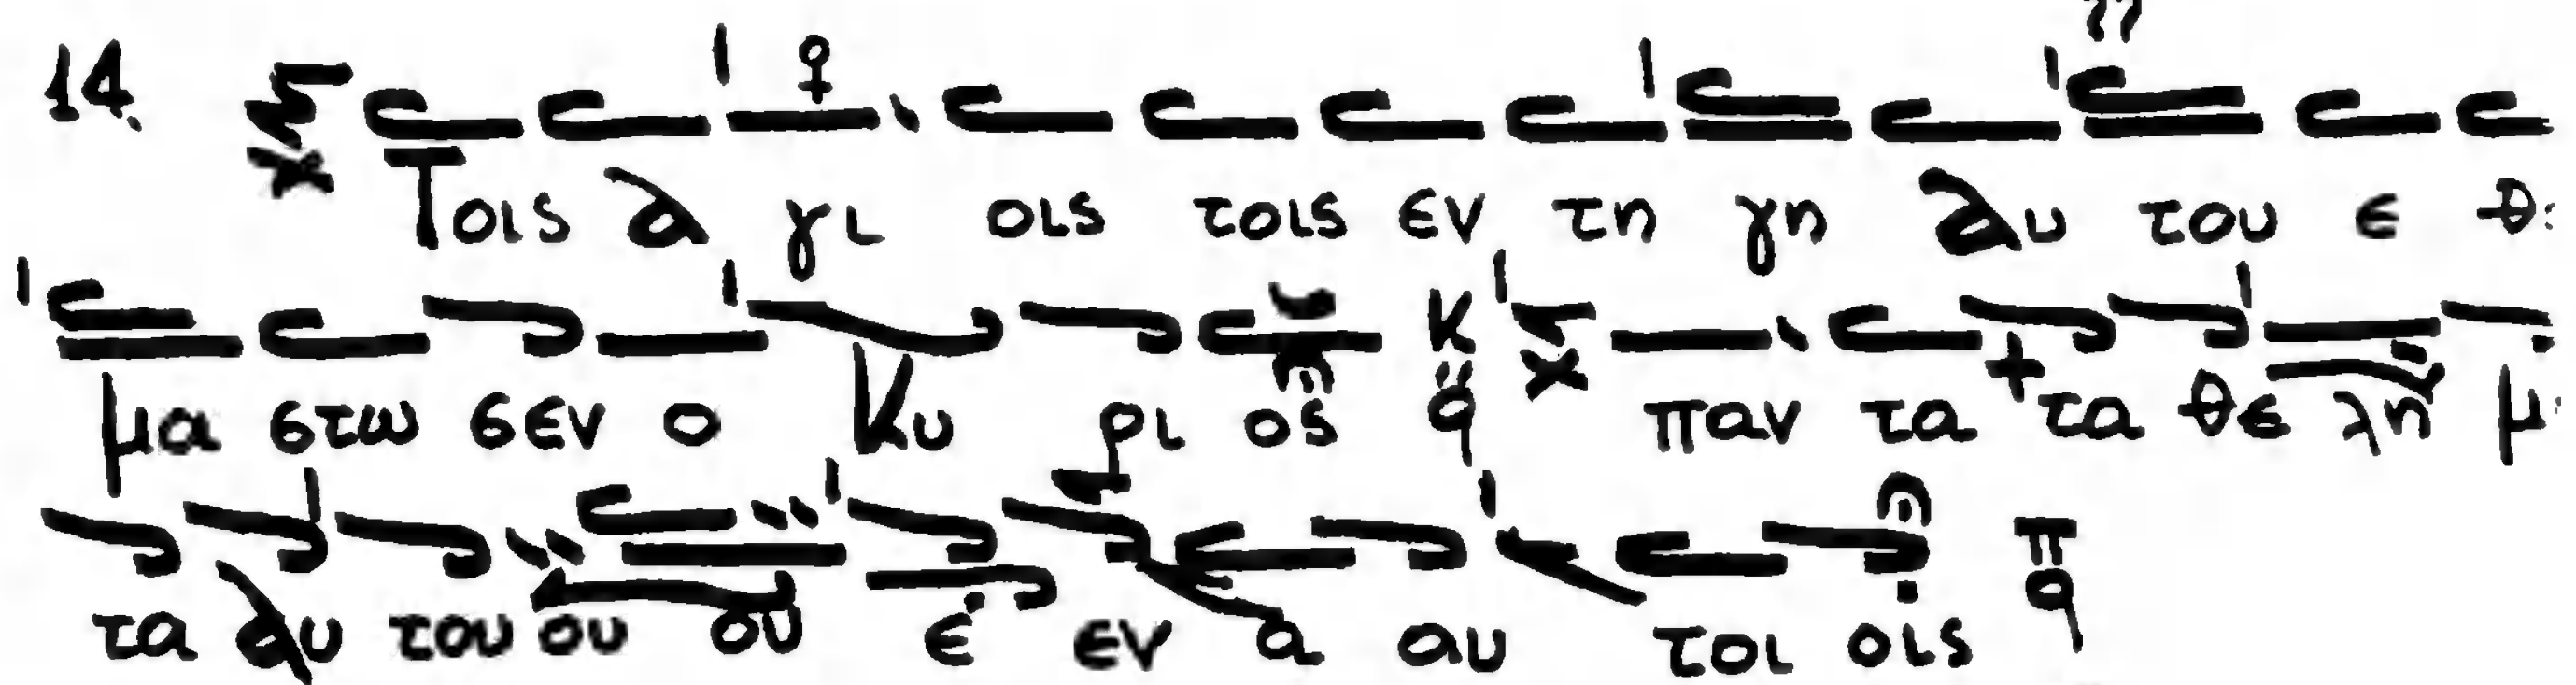 14. Τοις α γι οις τοις εν τη γη αυ του ε θ
μα στω σεν ο Κυ ρι ος παν τα τα θε λη μ
τα αυ του ου ου ε εν α αυ τοι οις